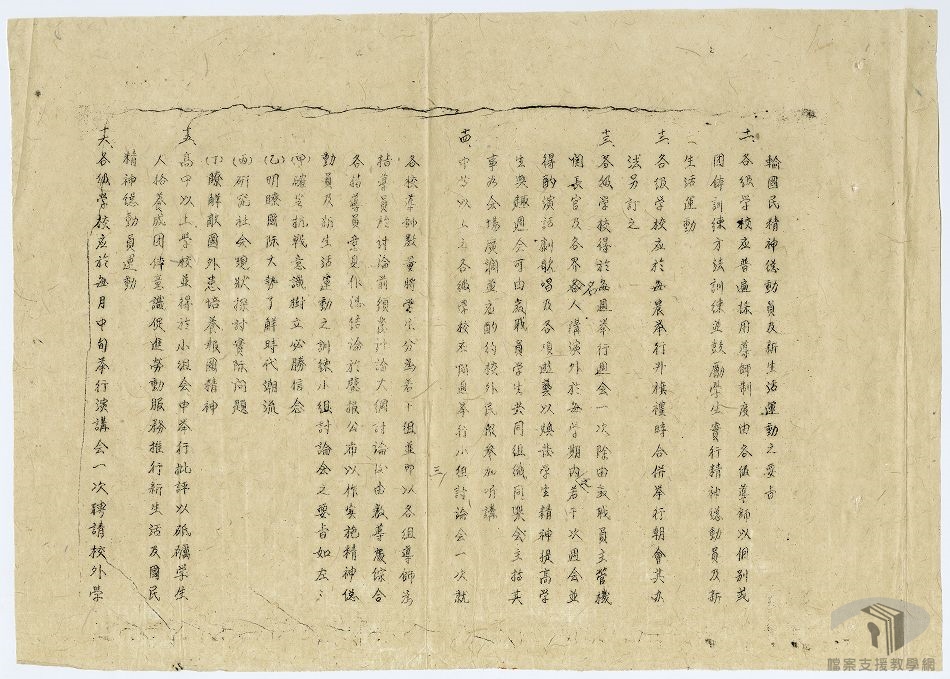 輸國民精神總動員及新生活運動之要旨
十一、各級學校应普遍採用導師制度由各位導師以個別或
团体訓練方法訓練並鼓勵學生實行精神總動員及新
生活運動
十二、各級学校应於每晨举行升旗禮時合併举行朝會其办
法另訂之
十三、各級学校得於每週举行週会一次除由教職員主管機
関長官及各界名人講演外於每学期內之若干次週会並
得酌演話劇歌唱及各項遊藝以煥發学生精神提高学
生興趣週会可由教職員学生共同組織同樂会主持其
事如会場廣濶並应酌約校外民眾参加听講
十四、中等以上各級学校应隔週举行小組討論会一次就
三
各校導師數量將学生分為若干組並即以各組導師為
指導員於討論前須製討論大綱討論後由教導處綜合
各指導員意見作總結論於壁報公布以作實施精神總
動員及新生活運動之訓練小組討論会之要旨如左：
(甲)確定抗戰意識樹立必勝信念
(乙)明瞭國际大勢了解時代潮流
(丙)研究社会現狀探討實际问題
(丁)瞭解敵國外患培養报國精神
十五、高中以上学校並得於小組会中举行批評以砥礪学生
人格养成团体意識促進勞動服務推行新生活及國民
精神總動員運動
十六、各級学校应於每月中旬举行演講会一次聘請校外学
檔案支援教學網